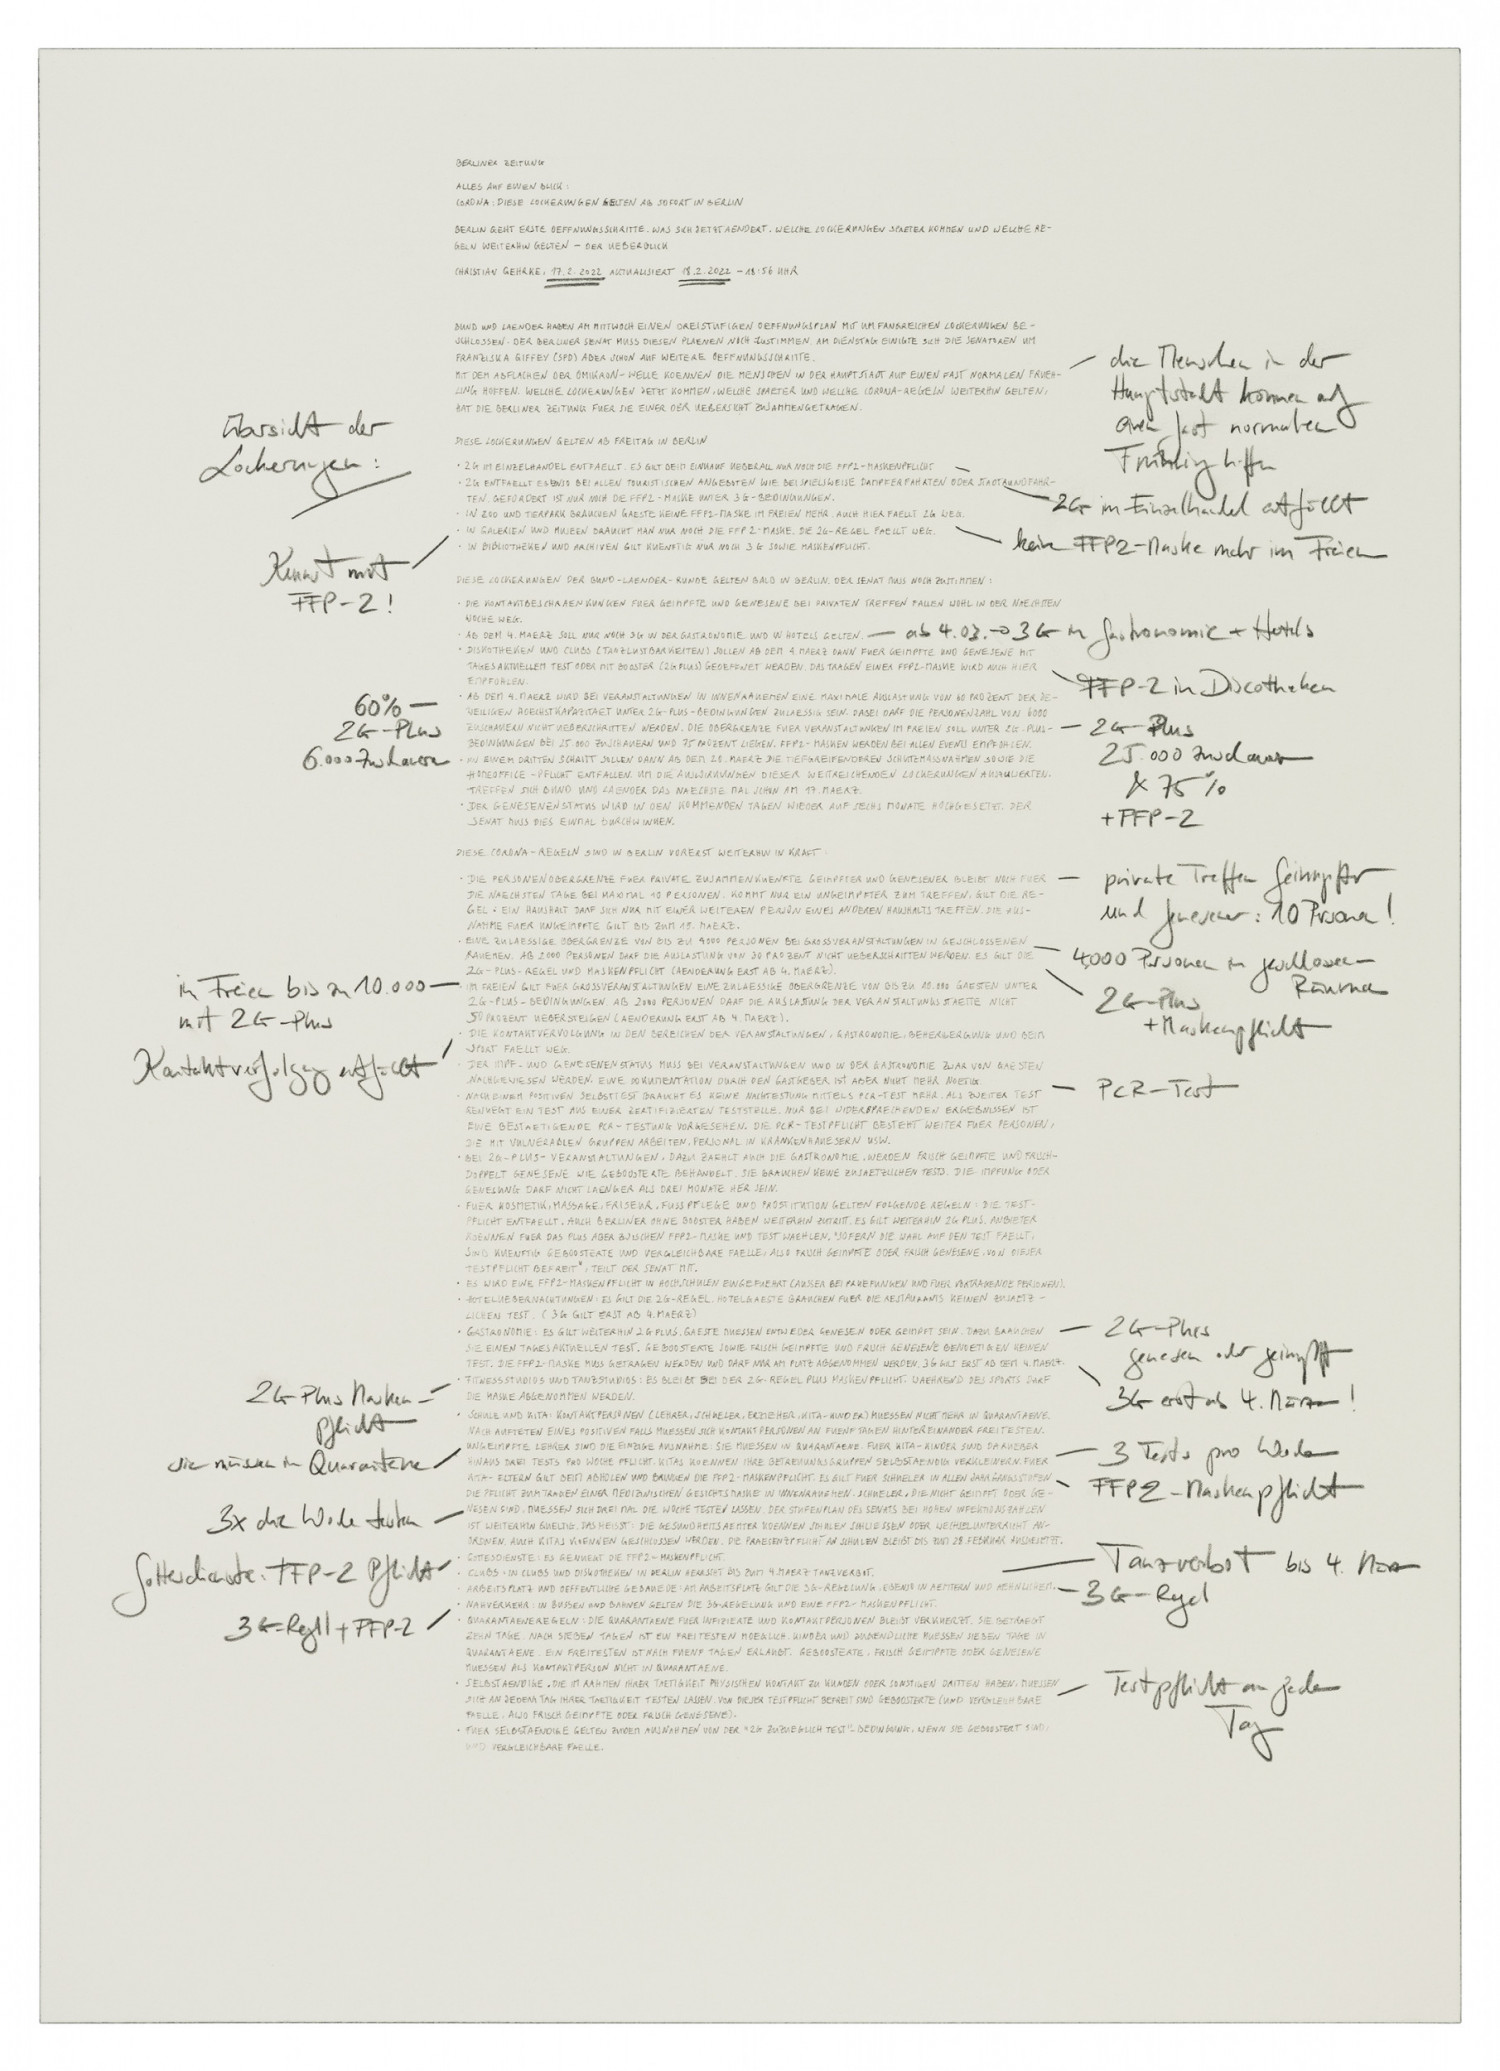 BERLINER ZEITUNG
ALLES AUF EINEN BLICK:
CORONA: DIESE LOCKERUNGEN GELTEN AB SOFORT IN BERLIN
BERLIN GEHT ERSTE OEFFNUNGSSCHRITTE. WAS SICH JETZT AENDERT, WELCHE LOCKERUNGEN SPAETER KOMMEN UND WELCHE RE-
GELN WEITERHIN GELTEN – DER UEBERBLICK
CHRISTIAN GEHRKE, 17.2.2022 AKTUALISIERT 18.2.2022 – 18:56 UHR
BUND UND LAENDER HABEN AM MITTWOCH EINEN DREISTUFIGEN OEFFNUNGSPLAN MIT UMFANGREICHEN LOCKERUNGEN BE-
SCHLOSSEN. DER BERLINER SENAT MUSS DIESEN PLAENEN NOCH ZUSTIMMEN. AM DIENSTAG EINIGTE SICH DIE SENATOREN UM
FRANZISKA GIFFEY (SPD) ABER SCHON AUF WEITERE OEFFNUNGSSCHRITTE.
MIT DEM ABFLACHEN DER OMIKRON-WELLE KOENNEN DIE MENSCHEN IN DER HAUPTSTADT AUF EINEN FAST NORMALEN FRUEH-
LING HOFFEN. WELCHE LOCKERUNGEN JETZT KOMMEN, WELCHE SPAETER UND WELCHE CORONA-REGELN WEITERHIN GELTEN,
HAT DIE BERLINER ZEITUNG FUER SIE EINER DER UEBERSICHT ZUSAMMENGETRAGEN.
die Menschen in der
Hauptstadt können auf
einen fast normalen
Frühling hoffen
Übersicht der
Lockerungen:
DIESE LOCKERUNGEN GELTEN AB FREITAG IN BERLIN
· 2G IM EINZELHANDEL ENTFAELLT. ES GILT BEIM EINKAUF UEBERALL NUR NOCH DIE FFP2-MASKENPFLICHT
· 2G ENTFAELLT EBENSO BEI ALLEN TOURISTISCHEN ANGEBOTEN WIE BEISPIELSWEISE DAMPFERFAHRTEN ODER STADTRUNDFAHR-
TEN. GEFORDERT IST NUR NOCH DIE FFP2-MASKE UNTER 3G-BEDINGUNGEN.
· IN ZOO UND TIERPARK BRAUCHEN GAESTE KEINE FFP2-MASKE IM FREIEN MEHR. AUCH HIER FAELLT 2G WEG.
· IN GALERIEN UND MUSEEN BRAUCHT MAN NUR NOCH DIE FFP2-MASKE. DIE 2G-REGEL FAELLT WEG.
· IN BIBLIOTHEKEN UND ARCHIVEN GILT KUENFTIG NUR NOCH 3G SOWIE MASKENPFLICHT.
2G im Einzelhandel entfällt
keine FFP2-Maske mehr im Freien
Kunst mit
FFP-2!
DIESE LOCKERUNGEN DER BUND-LAENDER-RUNDE GELTEN BALD IN BERLIN. DER SENAT MUSS NOCH ZUSTIMMEN:
· DIE KONTAKTBESCHRAENKUNGEN FUER GEIMPFTE UND GENESENE BEI PRIVATEN TREFFEN FALLEN WOHL IN DER NAECHSTEN
WOCHE WEG.
· AB DEM 4. MAERZ SOLL NUR NOCH 3G IN DER GASTRONOMIE UND IN HOTELS GELTEN. — ab 4.03. → 3G in Gastronomie + Hotels
· DISKOTHEKEN UND CLUBS (TANZLUSTBARKEITEN) SOLLEN AB DEM 4. MAERZ DANN FUER GEIMPFTE UND GENESENE MIT
TAGESAKTUELLEM TEST ODER MIT BOOSTER (2G PLUS) GEOEFFNET WERDEN. DAS TRAGEN EINER FFP2-MASKE WIRD AUCH HIER
EMPFOHLEN.
FFP-2 in Discotheken
· AB DEM 4. MAERZ WIRD BEI VERANSTALTUNGEN IN INNENRAEUMEN EINE MAXIMALE AUSLASTUNG VON 60 PROZENT DER JE-
WEILIGEN HOECHSTKAPAZITAET UNTER 2G-PLUS-BEDINGUNGEN ZULAESSIG SEIN. DABEI DARF DIE PERSONENZAHL VON 6000
ZUSCHAUERN NICHT UEBERSCHRITTEN WERDEN. DIE OBERGRENZE FUER VERANSTALTUNGEN IM FREIEN SOLL UNTER 2G-PLUS-
BEDINGUNGEN BEI 25.000 ZUSCHAUERN UND 75 PROZENT LIEGEN. FFP2-MASKEN WERDEN BEI ALLEN EVENTS EMPFOHLEN.
· IN EINEM DRITTEN SCHRITT SOLLEN DANN AB DEM 20. MAERZ DIE TIEFGREIFENDEREN SCHUTZMASSNAHMEN SOWIE DIE
HOMEOFFICE-PFLICHT ENTFALLEN. UM DIE AUSWIRKUNGEN DIESER WEITREICHENDEN LOCKERUNGEN
TREFFEN SICH BUND UND LAENDER DAS NAECHSTE MAL SCHON AM 17. MAERZ.
· DER GENESENENSTATUS WIRD IN DEN KOMMENDEN TAGEN WIEDER AUF SECHS MONATE HOCHGESETZT. DER
SENAT MUSS DIES EINMAL DURCHWINKEN.
60% —
2G-Plus
6.000 Zuschauer
2G-Plus
25.000 Zuschauer
& 75%
+ FFP-2
DIESE CORONA-REGELN SIND IN BERLIN VORERST WEITERHIN IN KRAFT:
· DIE PERSONENOBERGRENZE FUER PRIVATE ZUSAMMENKUENFTE GEIMPFTER UND GENESENER BLEIBT NOCH FUER
DIE NAECHSTEN TAGE BEI MAXIMAL 10 PERSONEN. KOMMT NUR EIN UNGEIMPFTER ZUM TREFFEN, GILT DIE RE-
GEL: EIN HAUSHALT DARF SICH NUR MIT EINER WEITEREN PERSON EINES ANDEREN HAUSHALTS TREFFEN. DIE AUS-
NAHME FUER UNGEIMPFTE GILT BIS ZUM 19. MAERZ.
· EINE ZULAESSIGE OBERGRENZE VON BIS ZU 4000 PERSONEN BEI GROSSVERANSTALTUNGEN IN GESCHLOSSENEN
RAEUMEN. AB 2000 PERSONEN DARF DIE AUSLASTUNG VON 30 PROZENT NICHT UEBERSCHRITTEN WERDEN. ES GILT DIE
2G-PLUS-REGEL UND MASKENPFLICHT (AENDERUNG ERST AB 4. MAERZ).
· IM FREIEN GILT FUER GROSSVERANSTALTUNGEN EINE ZULAESSIGE OBERGRENZE VON BIS ZU 10.000 GAESTEN UNTER
2G-PLUS-BEDINGUNGEN. AB 2000 PERSONEN DARF DIE AUSLASTUNG DER VERANSTALTUNGSSTAETTE NICHT
50 PROZENT UEBERSTEIGEN (AENDERUNG ERST AB 4. MAERZ).
· DIE KONTAKTVERFOLGUNG IN DEN BEREICHEN DER VERANSTALTUNGEN, GASTRONOMIE, BEHERBERGUNG UND BEIM
SPORT FAELLT WEG.
· DER IMPF- UND GENESENENSTATUS MUSS BEI VERANSTALTUNGEN UND IN DER GASTRONOMIE ZWAR VON GAESTEN
NACHGEWIESEN WERDEN. EINE DOKUMENTATION DURCH DEN GASTGEBER IST ABER NICHT MEHR NOETIG.
· NACH EINEM POSITIVEN SELBSTTEST BRAUCHT ES KEINE NACHTESTUNG MITTELS PCR-TEST MEHR. ALS ZWEITER TEST
REICHT EIN TEST AUS EINER ZERTIFIZIERTEN TESTSTELLE. NUR BEI WIDERSPRECHENDEN ERGEBNISSEN IST
EINE BESTAETIGENDE PCR-TESTUNG VORGESEHEN. DIE PCR-TESTPFLICHT BESTEHT WEITER FUER PERSONEN,
DIE MIT VULNERABLEN GRUPPEN ARBEITEN, PERSONAL IN KRANKENHAEUSERN USW.
private Treffen Geimpfter
und Genesener: 10 Personen!
4000 Personen in geschlossenen
Räumen
2G-Plus
+ Maskenpflicht
im Freien bis zu 10.000 —
mit 2G-Plus
Kontaktverfolgung entfällt
PCR-Test
· BEI 2G-PLUS-VERANSTALTUNGEN, DAZU ZAEHLT AUCH DIE GASTRONOMIE, WERDEN FRISCH GEIMPFTE UND FRISCH-
DOPPELT GENESENE WIE GEBOOSTERTE BEHANDELT. SIE BRAUCHEN KEINE ZUSAETZLICHEN TESTS. DIE IMPFUNG ODER
GENESUNG DARF NICHT LAENGER ALS DREI MONATE HER SEIN.
· FUER KOSMETIK, MASSAGE, FRISEUR, FUSSPFLEGE UND PROSTITUTION GELTEN FOLGENDE REGELN: DIE TEST-
PFLICHT ENTFAELLT. AUCH BERLINER OHNE BOOSTER HABEN WEITERHIN ZUTRITT. ES GILT WEITERHIN 2G PLUS. ANBIETER
KOENNEN FUER DAS PLUS ABER ZWISCHEN FFP2-MASKE UND TEST WAEHLEN. "SOFERN DIE WAHL AUF DEN TEST FAELLT,
SIND KUENFTIG GEBOOSTERTE UND VERGLEICHBARE FAELLE, ALSO FRISCH GEIMPFTE ODER FRISCH GENESENE, VON DIESER
TESTPFLICHT BEFREIT", TEILT DER SENAT MIT.
· ES WIRD EINE FFP2-MASKENPFLICHT IN HOCHSCHULEN EINGEFUEHRT (AUSSER BEI PRUEFUNGEN UND FUER VORTRAGENDE PERSONEN).
· HOTELUEBERNACHTUNGEN: ES GILT DIE 2G-REGEL. HOTELGAESTE BRAUCHEN FUER DIE RESTAURANTS KEINEN ZUSAETZ-
LICHEN TEST. (3G GILT ERST AB 4. MAERZ)
· GASTRONOMIE: ES GILT WEITERHIN 2G PLUS. GAESTE MUESSEN ENTWEDER GENESEN ODER GEIMPFT SEIN. DAZU BRAUCHEN
SIE EINEN TAGESAKTUELLEN TEST. GEBOOSTERTE SOWIE FRISCH GEIMPFTE UND FRISCH GENESENE BENOETIGEN KEINEN
TEST. DIE FFP2-MASKE MUSS GETRAGEN WERDEN UND DARF NUR AM PLATZ ABGENOMMEN WERDEN. 3G GILT ERST AB DEM 4. MAERZ.
· FITNESSSTUDIOS UND TANZSTUDIOS: ES BLEIBT BEI DER 2G-REGEL PLUS MASKENPFLICHT. WAEHREND DES SPORTS DARF
DIE MASKE ABGENOMMEN WERDEN.
2G-Plus
genesen oder geimpft
3G erst ab 4. März!
2G-Plus Masken-
pflicht
· SCHULE UND KITA: KONTAKTPERSONEN (LEHRER, SCHUELER, ERZIEHER, KITA-KINDER) MUESSEN NICHT MEHR IN QUARANTAENE.
NACH AUFTRETEN EINES POSITIVEN FALLS MUESSEN SICH KONTAKTPERSONEN AN FUENF TAGEN HINTEREINANDER FREITESTEN.
UNGEIMPFTE LEHRER SIND DIE EINZIGE AUSNAHME: SIE MUESSEN IN QUARANTAENE. FUER KITA-KINDER SIND DARUEBER
HINAUS DREI TESTS PRO WOCHE PFLICHT. KITAS KOENNEN IHRE BETREUUNGSGRUPPEN SELBSTAENDIG VERKLEINERN. FUER
KITA-ELTERN GILT BEIM ABHOLEN UND BRINGEN DIE FFP2-MASKENPFLICHT. ES GILT FUER SCHUELER IN ALLEN JAHRGANGSSTUFEN
DIE PFLICHT ZUM TRAGEN EINER MEDIZINISCHEN GESICHTSMASKE IN INNENRAEUMEN. SCHUELER, DIE NICHT GEIMPFT ODER GE-
NESEN SIND, MUESSEN SICH DREI MAL DIE WOCHE TESTEN LASSEN. DER STUFENPLAN DES SENATS BEI HOHEN INFEKTIONSZAHLEN
IST WEITERHIN GUELTIG. DAS HEISST: DIE GESUNDHEITSAEMTER KOENNEN SCHULEN SCHLIESSEN ODER WECHSELUNTERRICHT AN-
ORDNEN. AUCH KITAS KOENNEN GESCHLOSSEN WERDEN. DIE PRAESENZPFLICHT AN SCHULEN BLEIBT BIS ZUM 28. FEBRUAR AUSGESETZT.
sie müssen in Quarantäne
3 Tests pro Woche
FFP2-Maskenpflicht
3x die Woche testen
· GOTTESDIENSTE: ES GENUEGT DIE FFP2-MASKENPFLICHT.
· CLUBS: IN CLUBS UND DISKOTHEKEN IN BERLIN HERRSCHT BIS ZUM 4. MAERZ TANZVERBOT.
· ARBEITSPLATZ UND OEFFENTLICHE GEBAEUDE: AM ARBEITSPLATZ GILT DIE 3G-REGELUNG, EBENSO IN AEMTERN UND AEHNLICHEM.
· NAHVERKEHR: IN BUSSEN UND BAHNEN GELTEN DIE 3G-REGELUNG UND EINE FFP2-MASKENPFLICHT.
Gottesdienste: FFP-2 Pflicht
Tanzverbot bis 4. März
3G-Regel
3G-Regel + FFP-2
· QUARANTAENEREGELN: DIE QUARANTAENE FUER INFIZIERTE UND KONTAKTPERSONEN BLEIBT VERKUERZT. SIE BETRAEGT
ZEHN TAGE. NACH SIEBEN TAGEN IST EIN FREITESTEN MOEGLICH. KINDER UND JUGENDLICHE MUESSEN SIEBEN TAGE IN
QUARANTAENE. EIN FREITESTEN IST NACH FUENF TAGEN ERLAUBT. GEBOOSTERTE, FRISCH GEIMPFTE ODER GENESENE
MUESSEN ALS KONTAKTPERSON NICHT IN QUARANTAENE.
· SELBSTAENDIGE, DIE IM RAHMEN IHRER TAETIGKEIT PHYSISCHEN KONTAKT ZU KUNDEN ODER SONSTIGEN DRITTEN HABEN, MUESSEN
SICH AN JEDEM TAG IHRER TAETIGKEIT TESTEN LASSEN. VON DIESER TESTPFLICHT BEFREIT SIND GEBOOSTERTE (UND VERGLEICHBARE
FAELLE, ALSO FRISCH GEIMPFTE ODER FRISCH GENESENE).
· FUER SELBSTAENDIGE GELTEN ZUDEM AUSNAHMEN VON DER "2G ZUZUEGLICH TEST"-BEDINGUNG, WENN SIE GEBOOSTERT SIND/
UND VERGLEICHBARE FAELLE.
Testpflicht an jedem
Tag